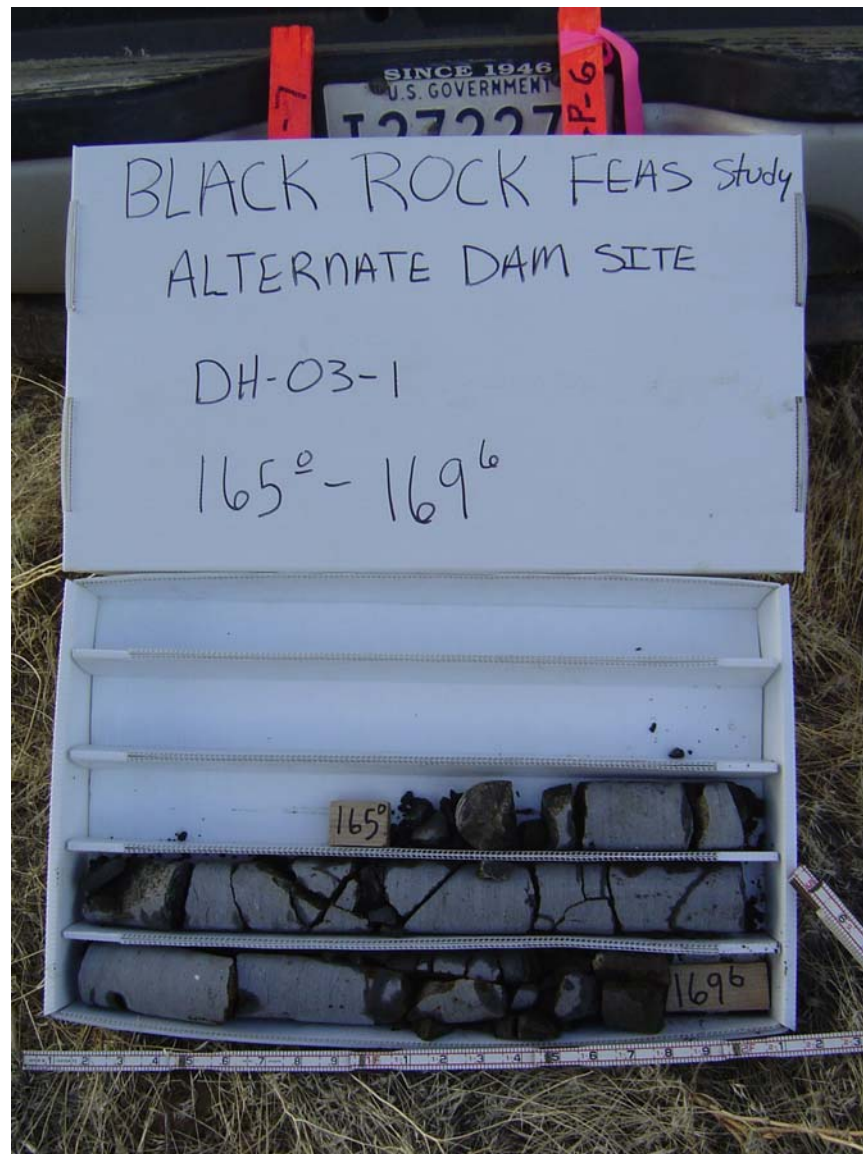 SINCE 1946
U.S. GOVERNMENT
-7
P-6
BLACK ROCK FEAS Study
ALTERNATE DAM SITE
DH-03-1
165º - 169⁶
165⁰
169⁶
1 2 3 4 5 6 7 8 9 1F 1 2 3 4 5 6 7 8 9 2F 1 2 3